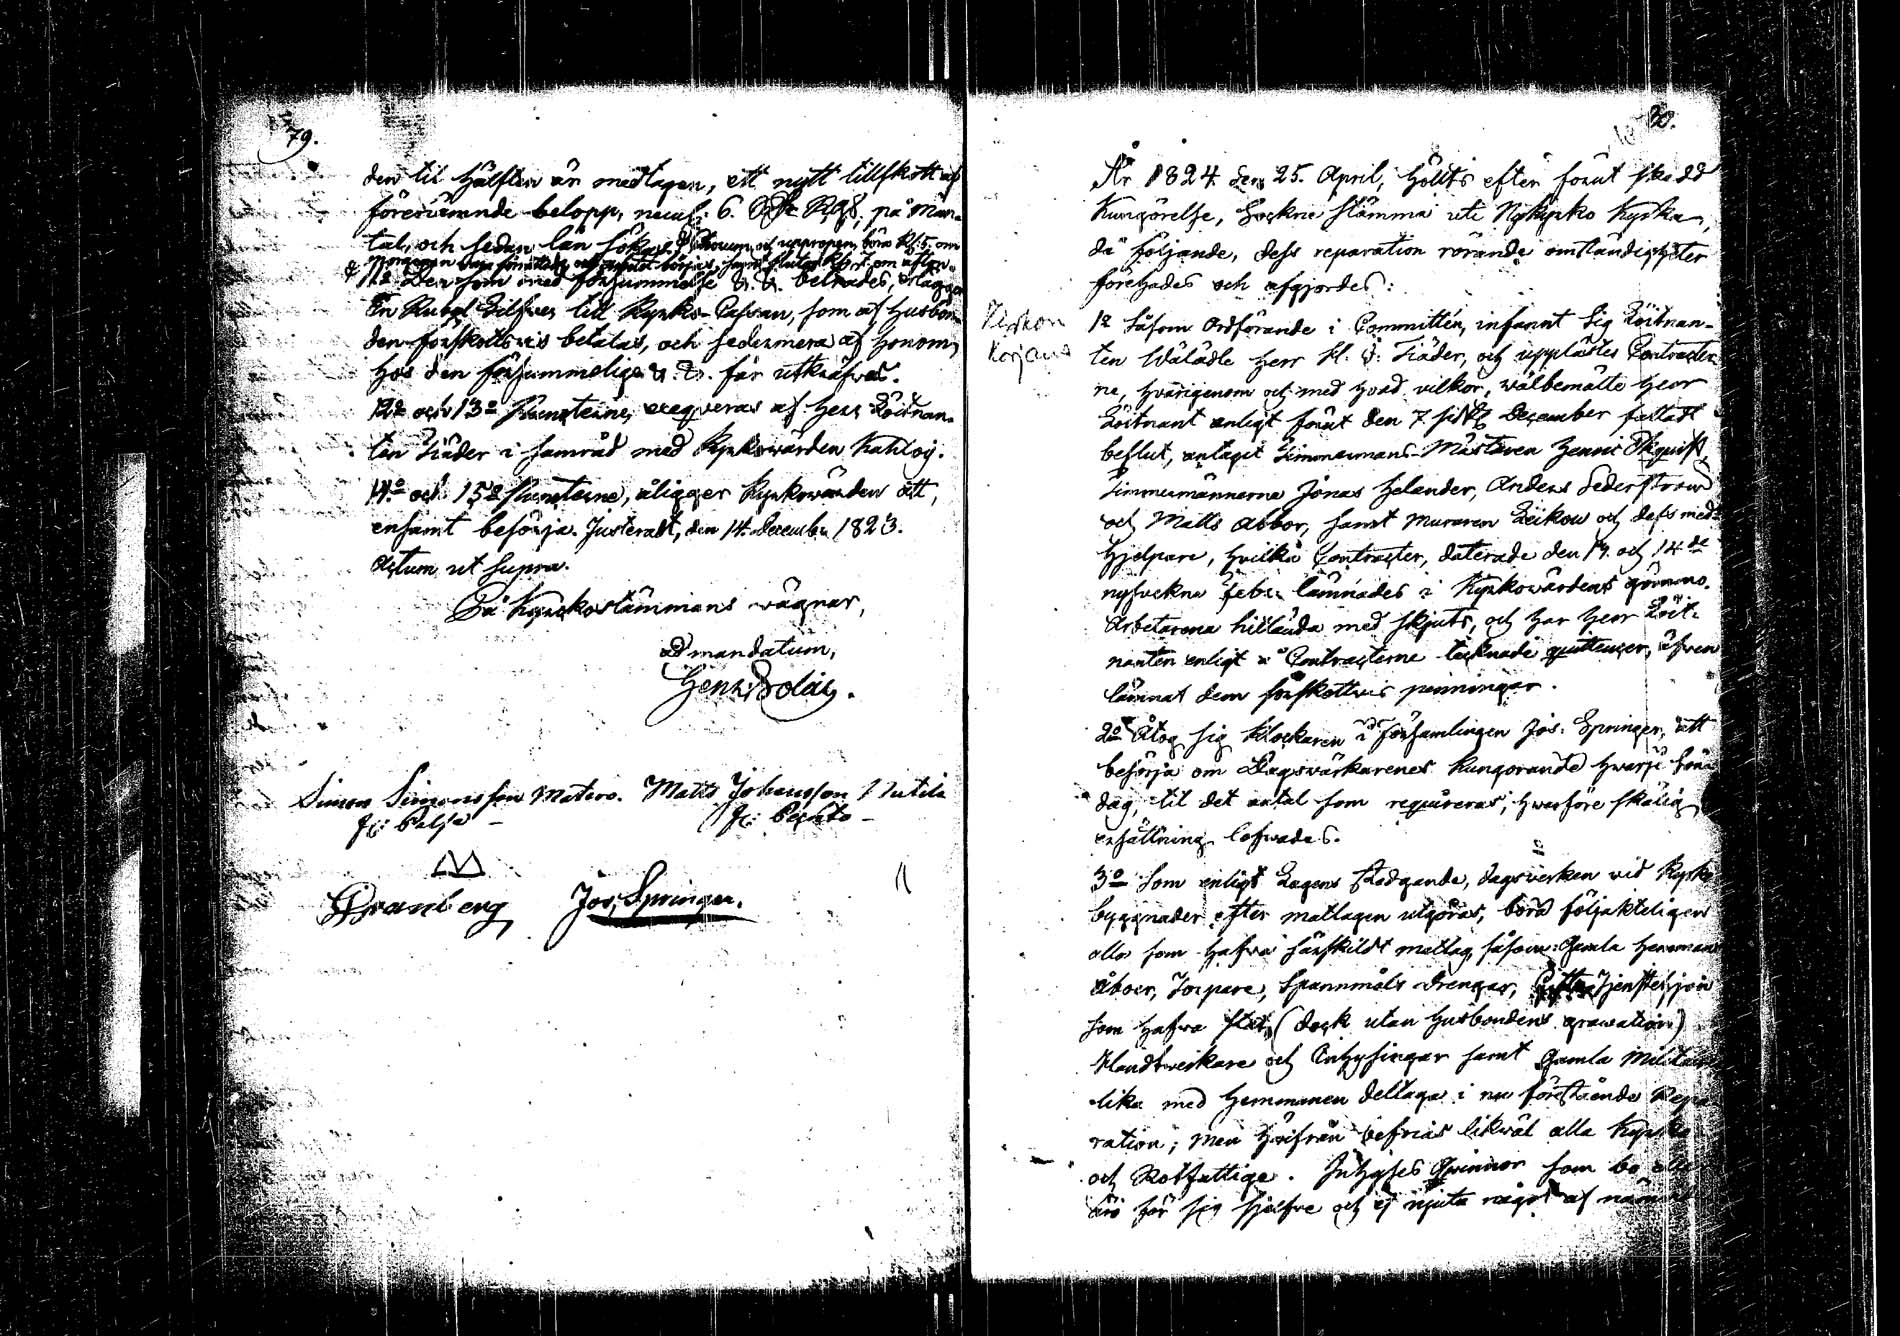 79.
den til hälften är medtagen, ett nytt tillskott af
förenämnde belopp, neml: 6. R:gs, på Man-
tal, och sedan lån sökas.
1:o Den som med försummelse &. &. beträdes, erlägger
En Rubel Silfver till Kyrko-Cassan, som af husbon-
den förskottsvis betalas, och sedermera af honom,
hos den försummelige &. &. får utkräfvas.
12:o och 13:o Puncterne, exeqveras af Herr Löitnan-
ten Träder i samråd med Kyrkovärden Kahloj.
14:o och 15:o Puncterne, åligger Kyrkovärden att,
ensamt besörja. Justeradt, den 14. December 1823.
Actum ut supra.
På Kyrckostämmans wägnar,
ad mandatum,
Simon Simonsson Matero. Matts Johansson Nutila
Granberg Jos. Springer.
30.
År 1824 den 25. April, hölts efter förut skedd
Kungörelse, Sockne stämma uti Nykyrko Kyrka,
då följande, dess reparation rörande omständigheter
förehades och afgjordes:
Kirkon
Korjaus
1:o Såsom Ordförande i Committén, infannt sig Löitnan-
ten Wälädle Herr Träder, och upplästes Contracter-
ne, hvarigenom och med hvad vilkor, wälbemälte Herr
Löitnant enligt förut den 7 sistl. December fattadt
beslut, antagit Timmermans-Mästaren Henric Åkquist,
Timmermännerna Jonas Helander, Anders Sederström
och Matts Abbor, samt Muraren Leikow och dess med-
hjelpare, hvilka Contracter, daterade den 13. och 14:de
nyssvekne Febr. lämnades i Kyrkowärdens gömmo.
Arbetarena hitlända med skjuts, och har Herr Löit-
nanten enligt å Contracterne tecknade quittencer, äfven
lämnat dem förskottvis penningar.
2:o Åtog sig Klockaren i Församlingen Jos. Springer, att
besörja om Dagsvärkarenes kungorande hwarje Sön-
dag, til det antal som requireras, hwarföre skälig
ersättning lofwades.
3:o Som enligt Lagens stadgande, dagsverken vid Kyrko
byggnader efter matlagen utgöras, böra följakteligen
alla som hafwa särskildt matlag, såsom: Gamla Hemman
åboer, Torpare, Spannmåls Drengar, Tjenstehjon
som hafwa stat, (dock utan husbondens grawation)
Handtverkare och Inhysingar samt Gamla Militair
lika med Hemmanen deltaga i nu förestående Repa
ration; men härifrån befrias likwäl alla Kyrko
och Rotfattige. Inhyses Qvinnor som bo
äro för sig sjelfve och ej njuta något af